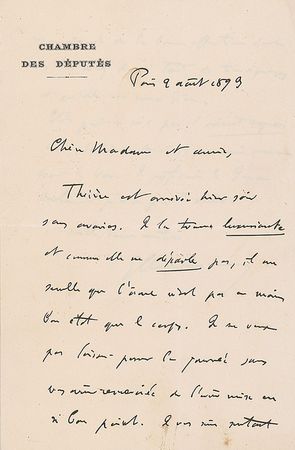 CHAMBRE
DES DÉPUTÉS
Paris 2 août 1893
Chère Madame et amie,
Thérèse est arrivée hier soir
sans avaries. Je la trouve luxuriante
et comme elle ne déparle pas, il me
semble que l'âme n'est pas en moins
bon état que le corps. Je ne veux
pas laisser passer la journée sans
vous avoir remerciée de l'avoir mise en
si bon point. Je vous suis surtout